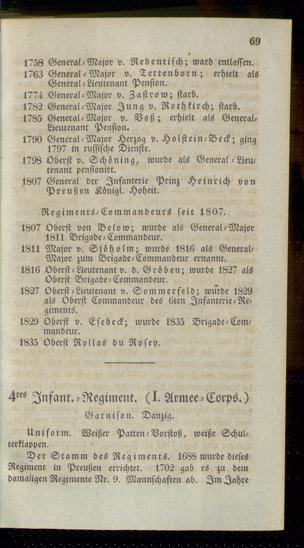 69
1758 General-Major v. Rebentisch; ward entlassen.
1763 General-Major v. Tettenborn; erhielt als
General-Lieutenant Pension.
1774 General-Major v. Zastrow; starb.
1782 General-Major Jung v. Rothkirch; starb.
1785 General-Major v. Voß; erhielt als General-
Lieutenant Pension.
1790 General-Major Herzog v. Holstein-Beck; ging
1797 in russische Dienste.
1798 Oberst v. Schöning, wurde als General-Lieu-
tenant pensionirt.
1807 General der Infanterie Prinz Heinrich von
Preußen Königl. Hoheit.
Regiments-Commandeurs seit 1807.
1807 Oberst von Below; wurde als General-Major
1811 Brigade-Commandeur.
1811 Major v. Sjöholm; wurde 1816 als General-
Major zum Brigade-Commandeur ernannt.
1816 Oberst-Lieutenant v. d. Gröben; wurde 1827 als
Oberst Brigade-Commandeur.
1827 Oberst-Lieutenant v. Sommerfeld; wurde 1829
als Oberst Commandeur des 6ten Infanterie-Re-
giments.
1829 Oberst v. Esebeck; wurde 1835 Brigade-Com-
mandeur.
1835 Oberst Rollas du Rosey.
4tes Infant.-Regiment. (I. Armee-Corps.)
Garnison. Danzig.
Uniform. Weißer Patten-Vorstoß, weiße Schul-
terklappen.
Der Stamm des Regiments. 1688 wurde dieses
Regiment in Preußen errichtet. 1702 gab es zu dem
damaligen Regimente Nr. 9. Mannschaften ab. Im Jahre